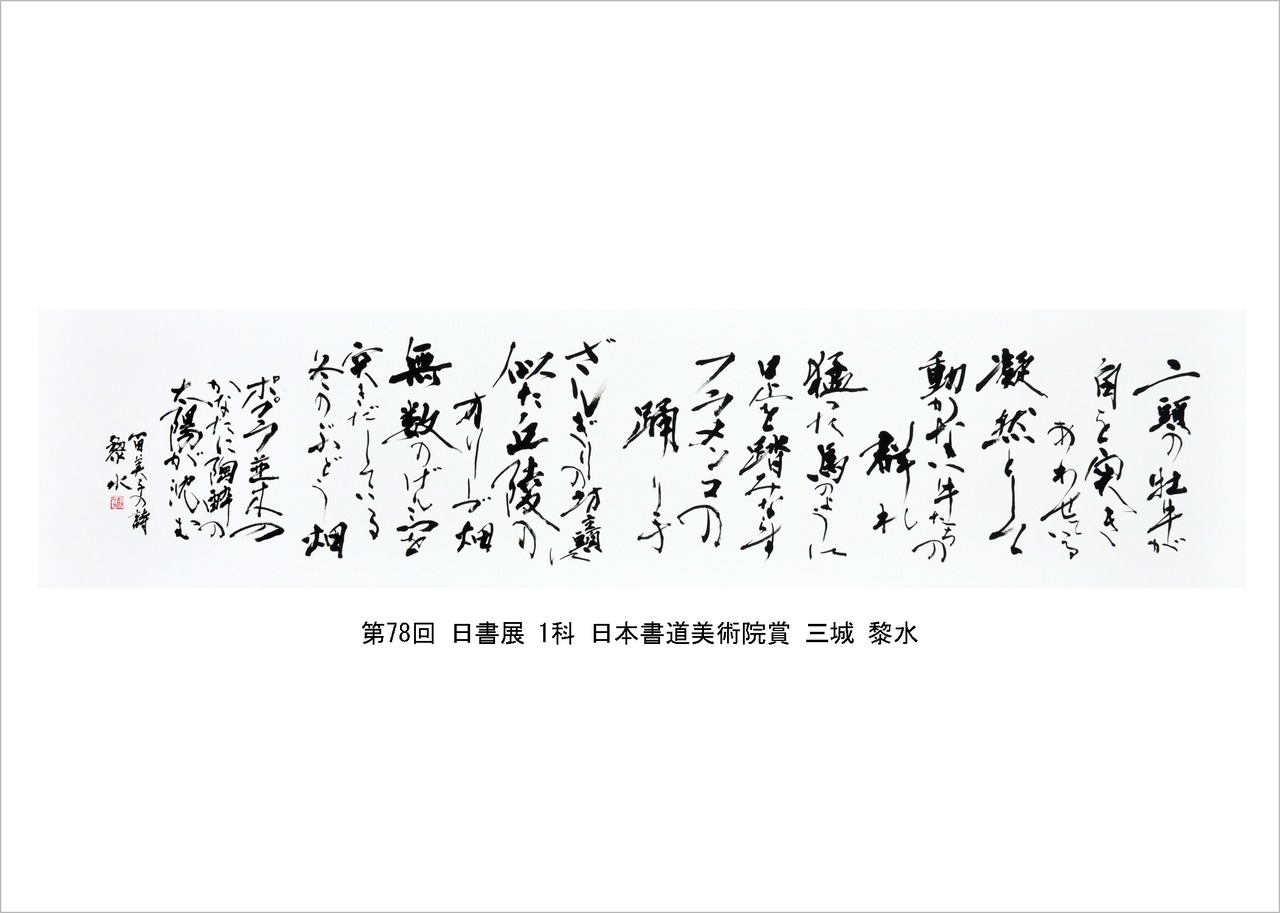 二頭の牡牛が
角と角を突き
あわせている
凝然として
動かない牛たちの
群れ
猛った馬のように
足を踏みならす
フラメンコの
踊り手
ざんぎりの坊主頭に
似た丘陵の
オリーブ畑
無数のげんこつを
突きだしている
冬のぶどう畑
ポプラ並木の
かなたに陶酔の
太陽が沈む
美子の詩
黎水
第78回 日書展 1科 日本書道美術院賞 三城 黎水